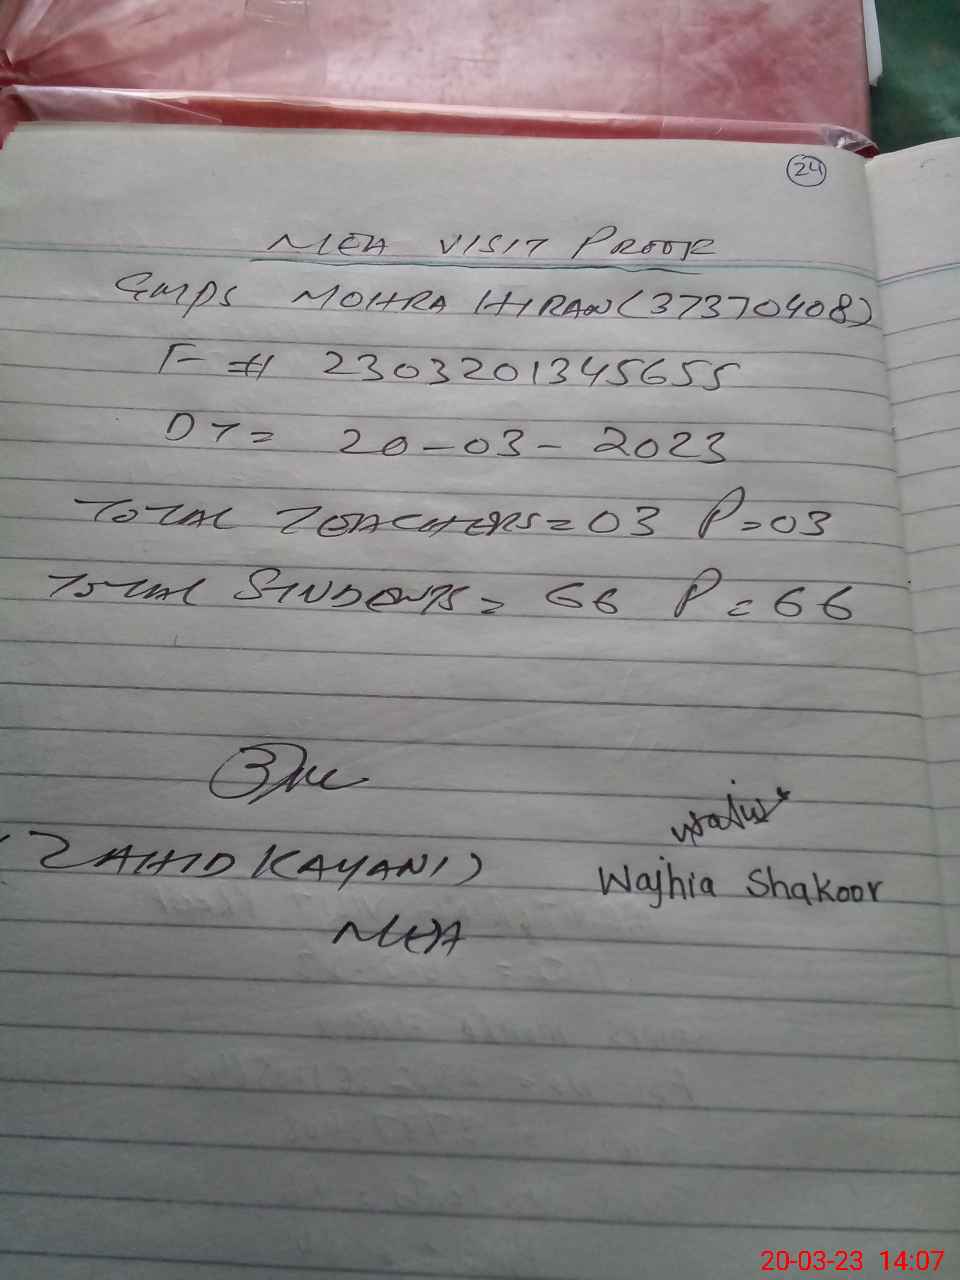 24
MEA VISIT PROOF
GMPS MOHRA HIRAN (37370408)
F # 2303201345655
DT = 20-03-2023
TOTAL TEACHERS = 03 P = 03
TOTAL STUDENTS = 66 P = 66
(ZAHID KAYANI)
Wajhia Shakoor
MEA
20-03-23 14:07